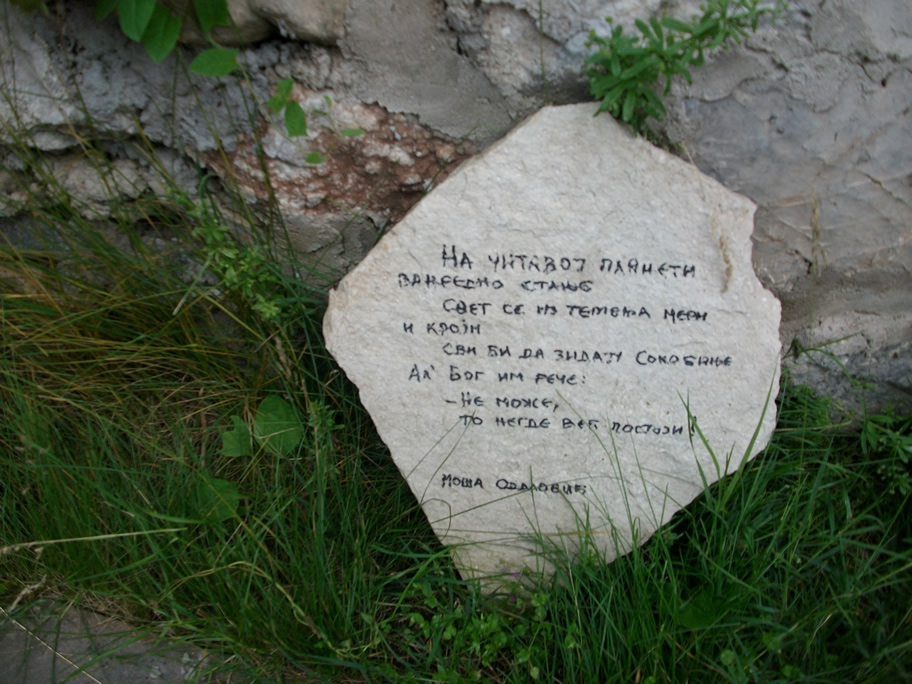 На читавој планети
ванредно стање
Свет се из темеља мери
и кроји
Сви би да зидају Сокобање
Ал' Бог им рече:
- Не може,
то негде већ постоји!
Моша Одаловић